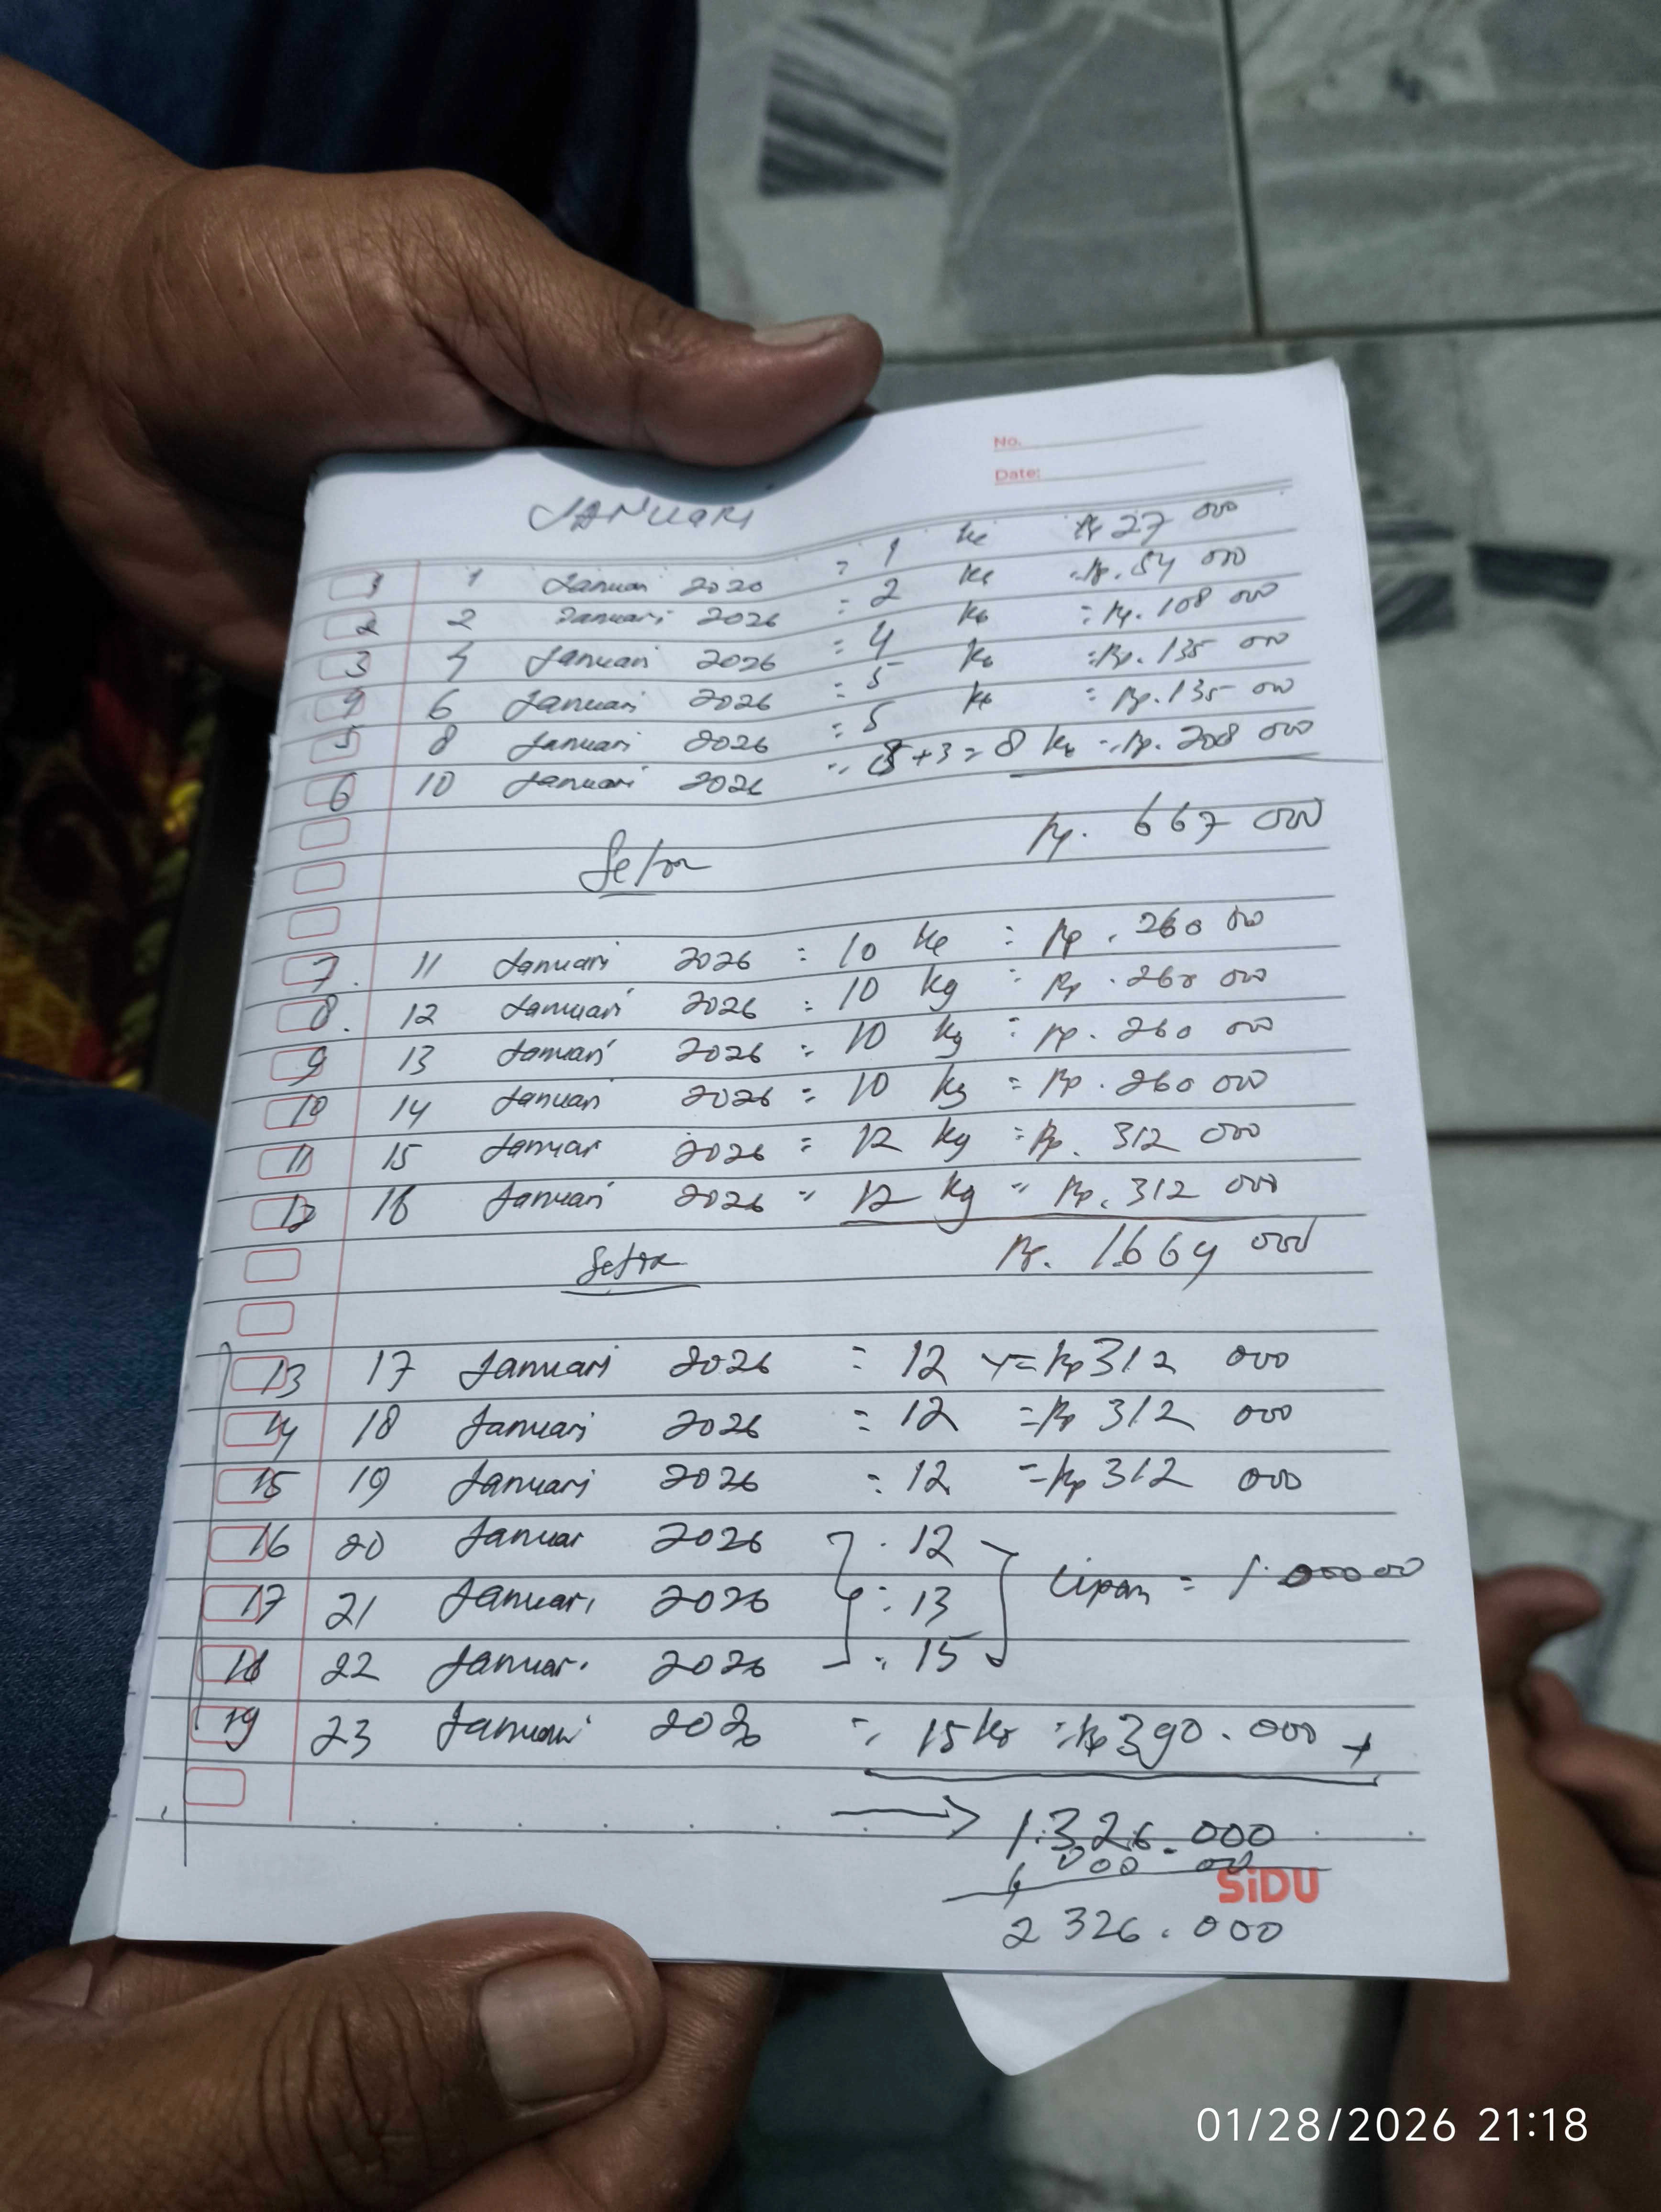 No.
Date:
JANUARI
1 1 Januari 2020 = 1 kg Rp 27 000
2 2 Januari 2026 = 2 kg Rp. 54 000
3 4 Januari 2026 = 4 kg = Rp. 108 000
4 6 Januari 2026 = 5 kg = Rp. 135 000
5 8 Januari 2026 = 5 kg = Rp. 135 000
6 10 Januari 2026 = 5+3 = 8 kg = Rp. 208 000
Rp. 667 000
Setor
7. 11 Januari 2026 = 10 kg = Rp. 260 000
8. 12 Januari 2026 = 10 kg = Rp. 260 000
9 13 Januari 2026 = 10 kg = Rp. 260 000
10 14 Januari 2026 = 10 kg = Rp. 260 000
11 15 Januar 2026 = 12 kg = Rp. 312 000
12 16 Januari 2026 = 12 kg = Rp. 312 000
Setor Rp. 1.664 000
13 17 Januari 2026 = 12 = Rp 312 000
14 18 Januari 2026 = 12 = Rp 312 000
15 19 Januari 2026 = 12 = Rp 312 000
16 20 Januar 2026 : 12
17 21 Januari 2026 = 13 = 1.000000
18 22 Januari 2026 = 15
19 23 Januari 2026 = 15 kg = Rp 390.000 +
→ 1.326.000
1 000 000
SiDU
2 326.000
01/28/2026 21:18